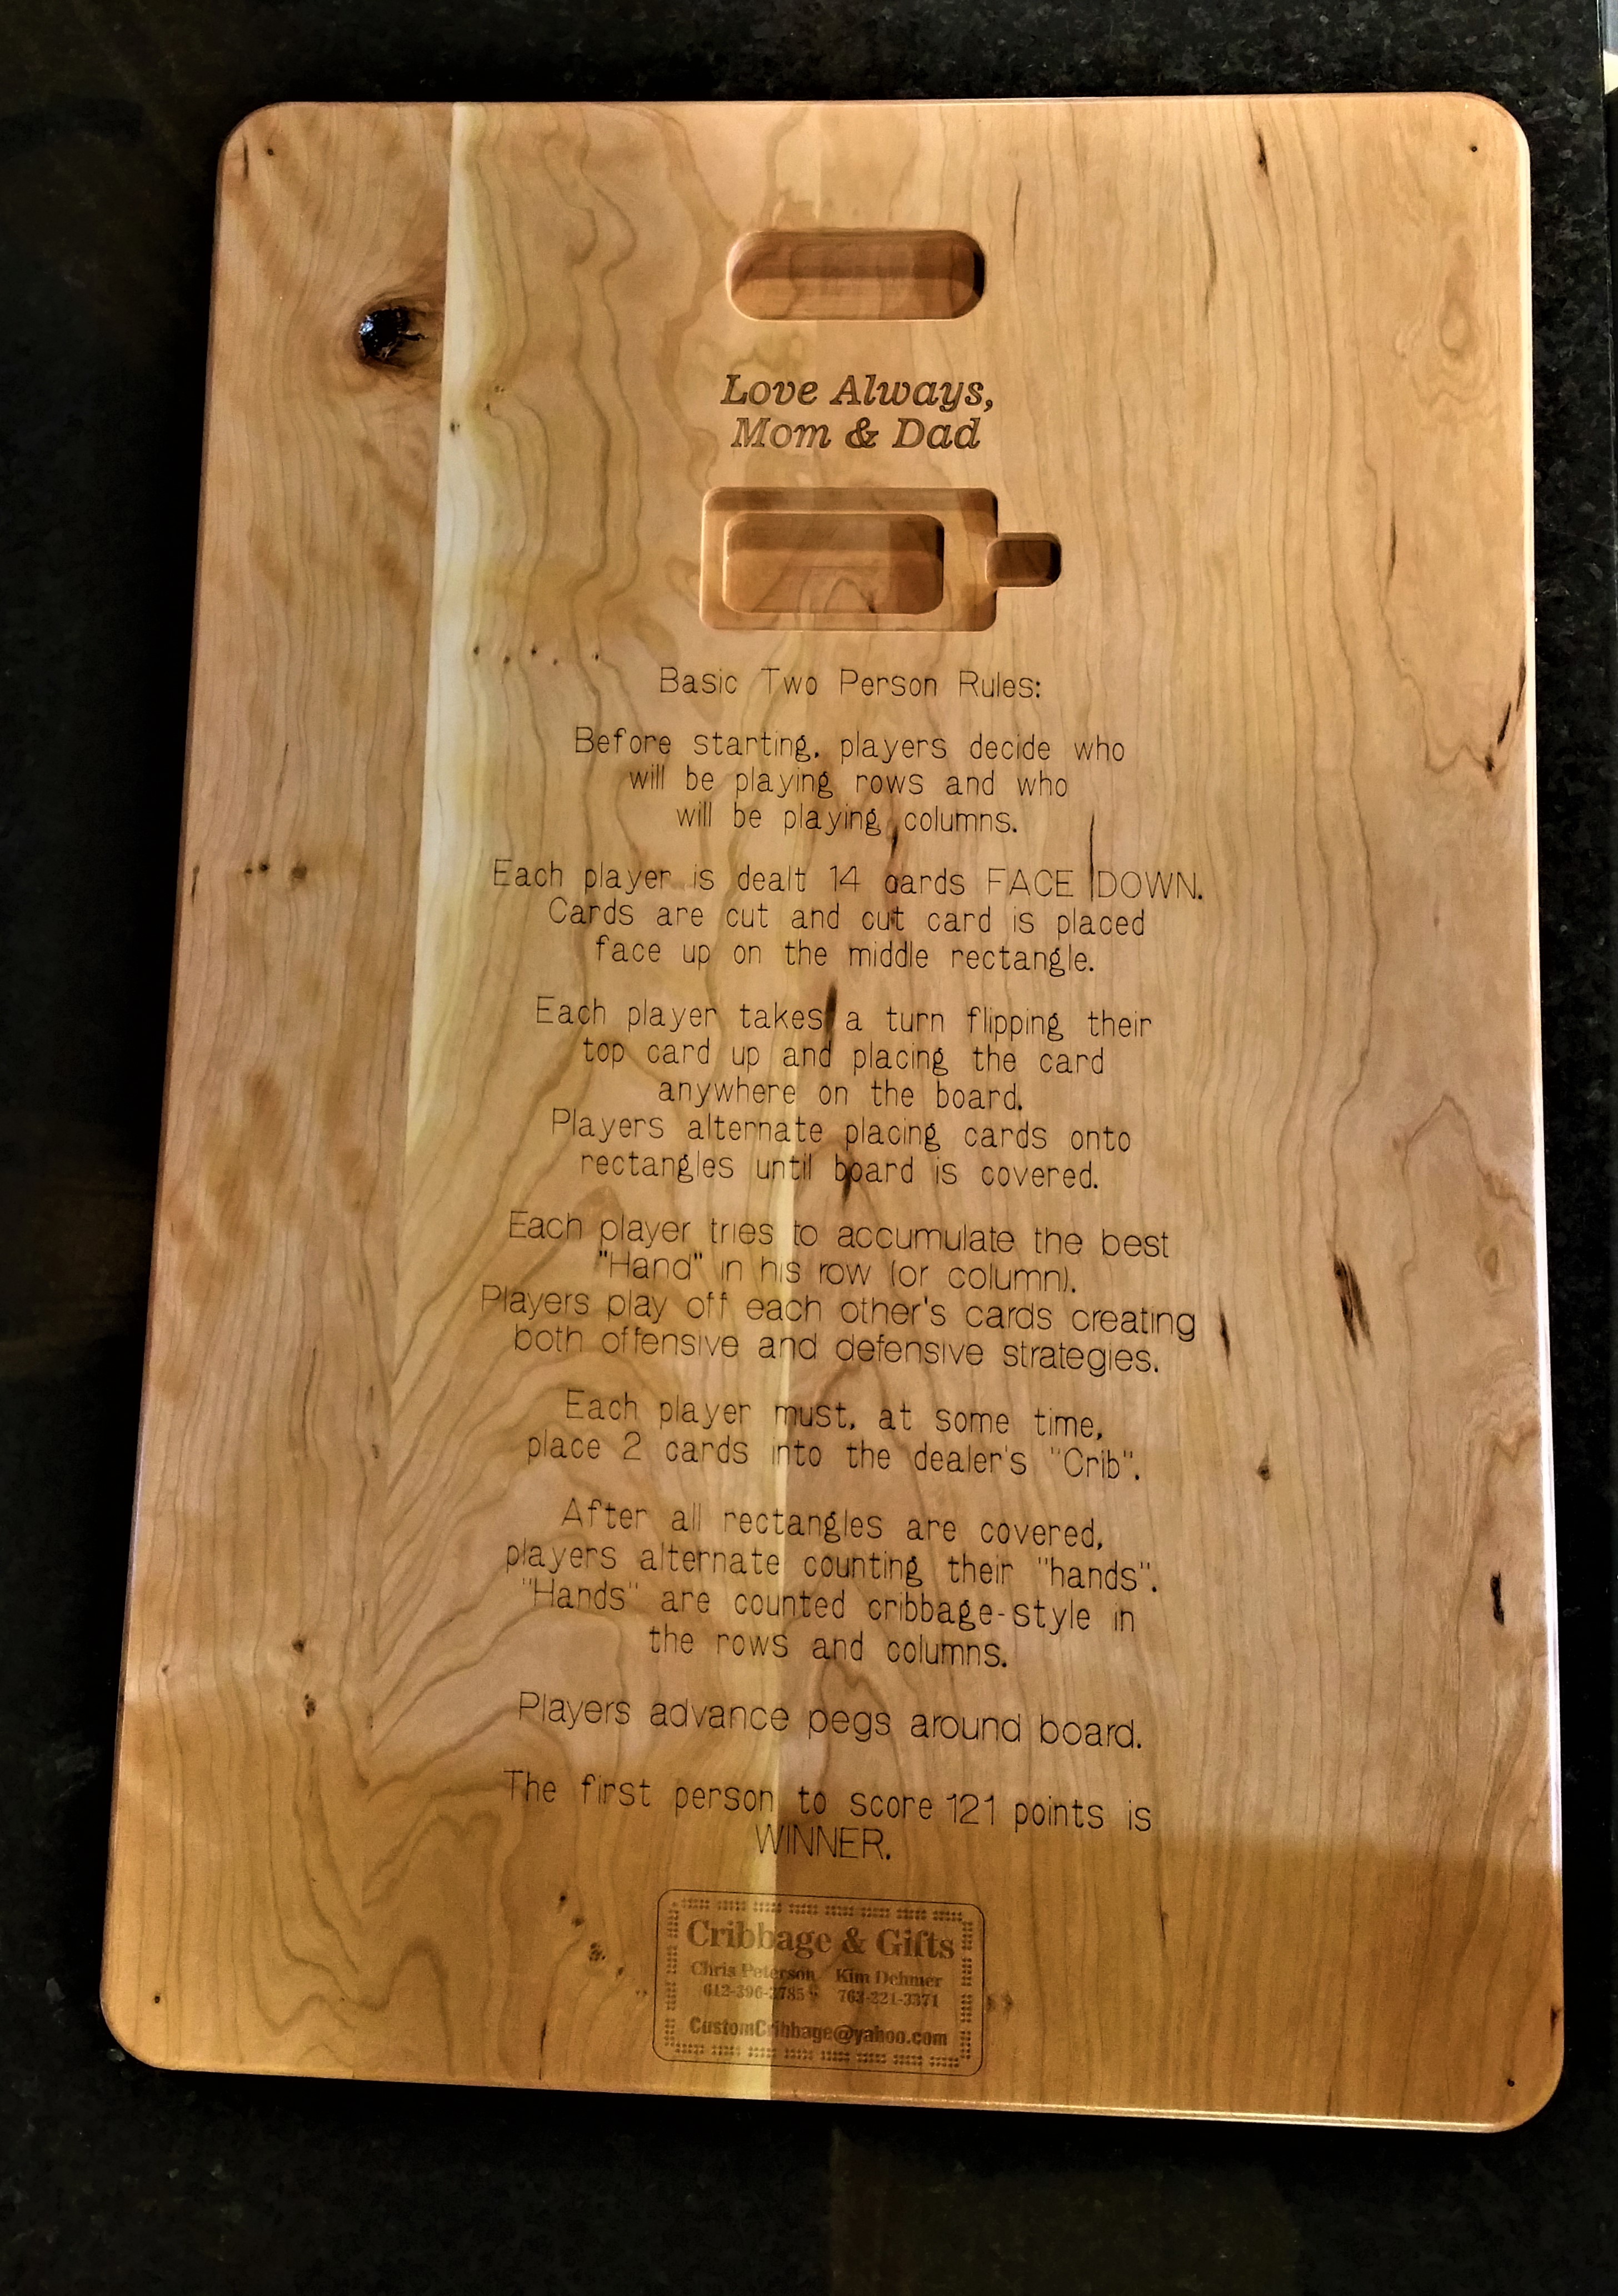 Love Always,
Mom & Dad
Basic Two Person Rules:
Before starting, players decide who
will be playing rows and who
will be playing columns.
Each player is dealt 14 cards FACE DOWN.
Cards are cut and cut card is placed
face up on the middle rectangle.
Each player takes a turn flipping their
top card up and placing the card
anywhere on the board.
Players alternate placing cards onto
rectangles until board is covered.
Each player tries to accumulate the best
"Hand" in his row (or column).
Players play off each other's cards creating
both offensive and defensive strategies.
Each player must, at some time,
place 2 cards into the dealer's "Crib".
After all rectangles are covered,
players alternate counting their "hands".
"Hands" are counted cribbage-style in
the rows and columns.
Players advance pegs around board.
The first person to score 121 points is
WINNER.
Cribbage & Gifts
Chris Peterson Kim Dehmer
612-396-3785 763-221-3371
CustomCribbage@yahoo.com